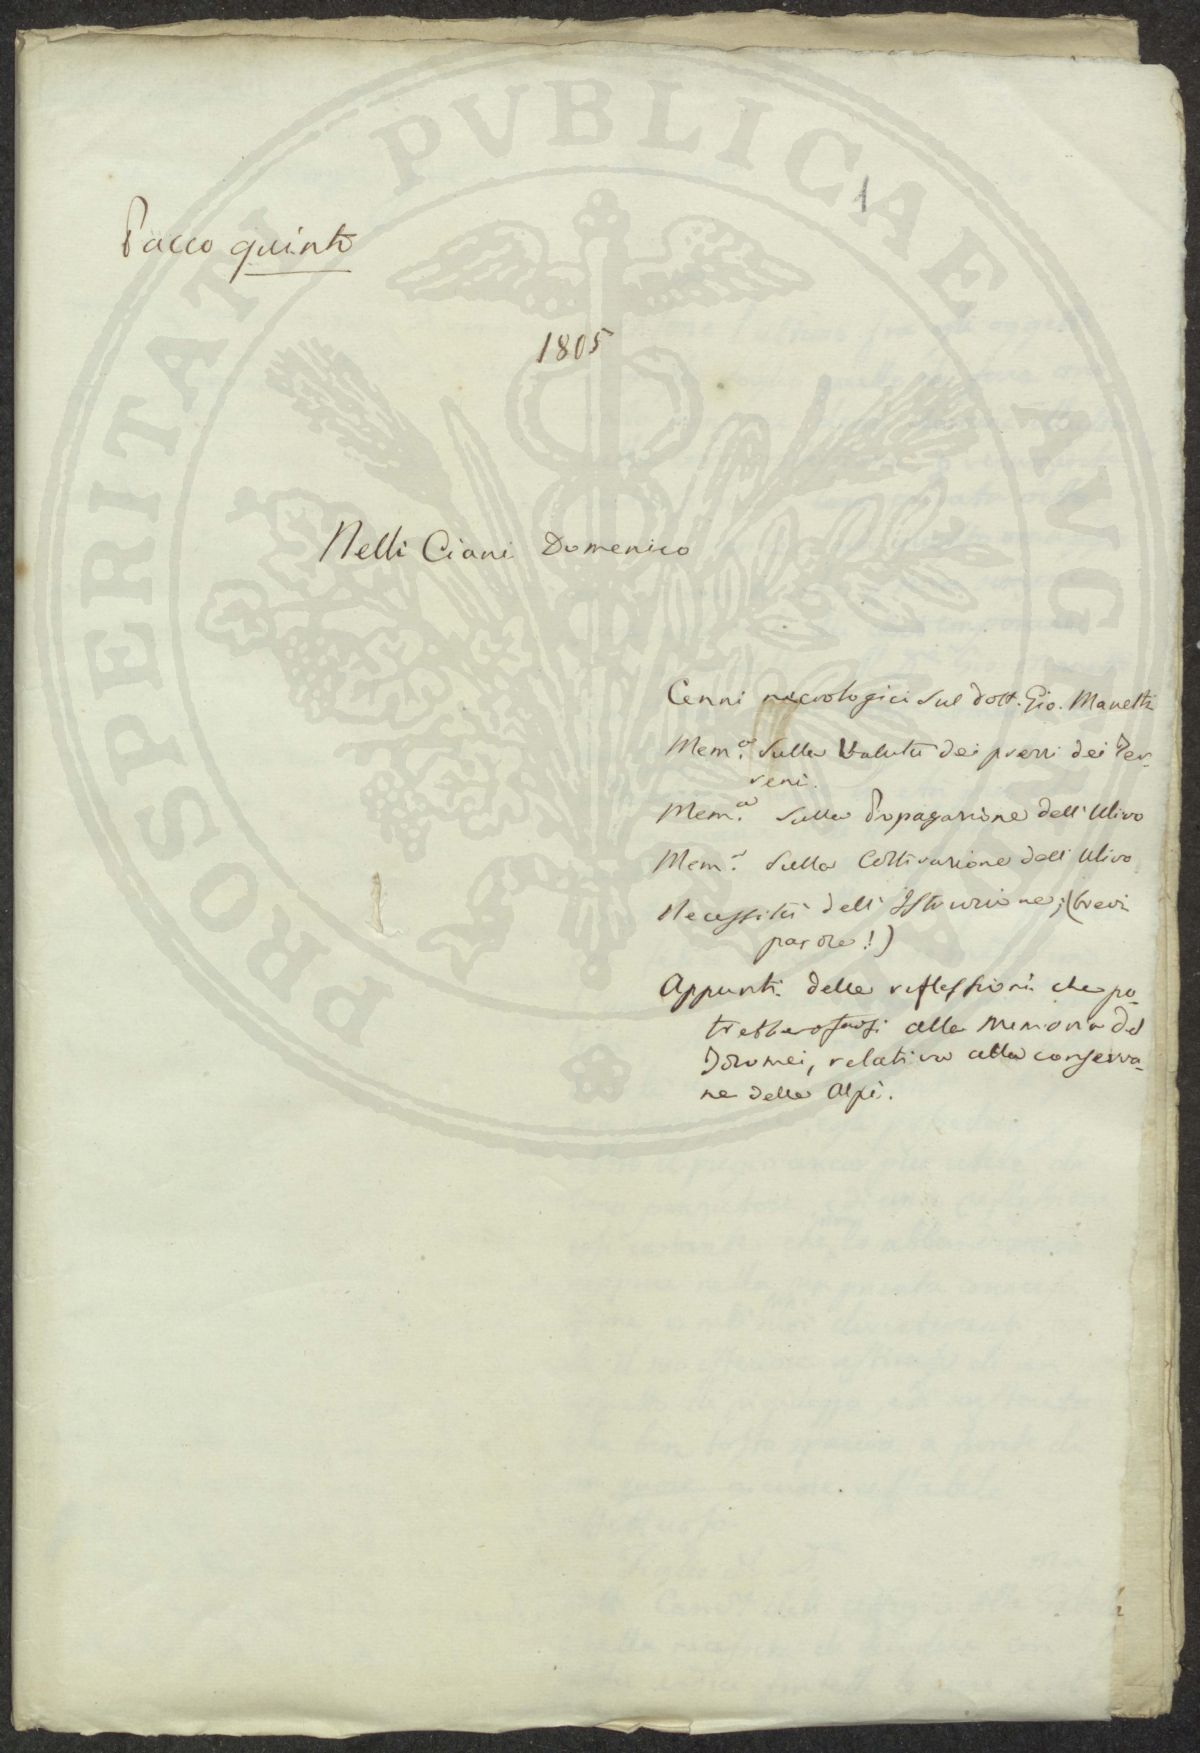 PROSPERITATI PVBLICAE AVGENDAE
1
Pacco quinto
1805
Nelli Ciani Domenico
Cenni necrologici sul dott. Gio. Manetti
Mem.a sulla Valuta dei prezzi dei Ter-
reni.
Mem.a sulla Propagazione dell'Ulivo
Mem.a sulla Coltivazione dell'Ulivo
Necessità dell'Istruzione; (brevi
parole!)
Appunti delle reflessioni che po-
trebbero farsi alla memoria del
relativa alla conserva-
ne delle Alpi.